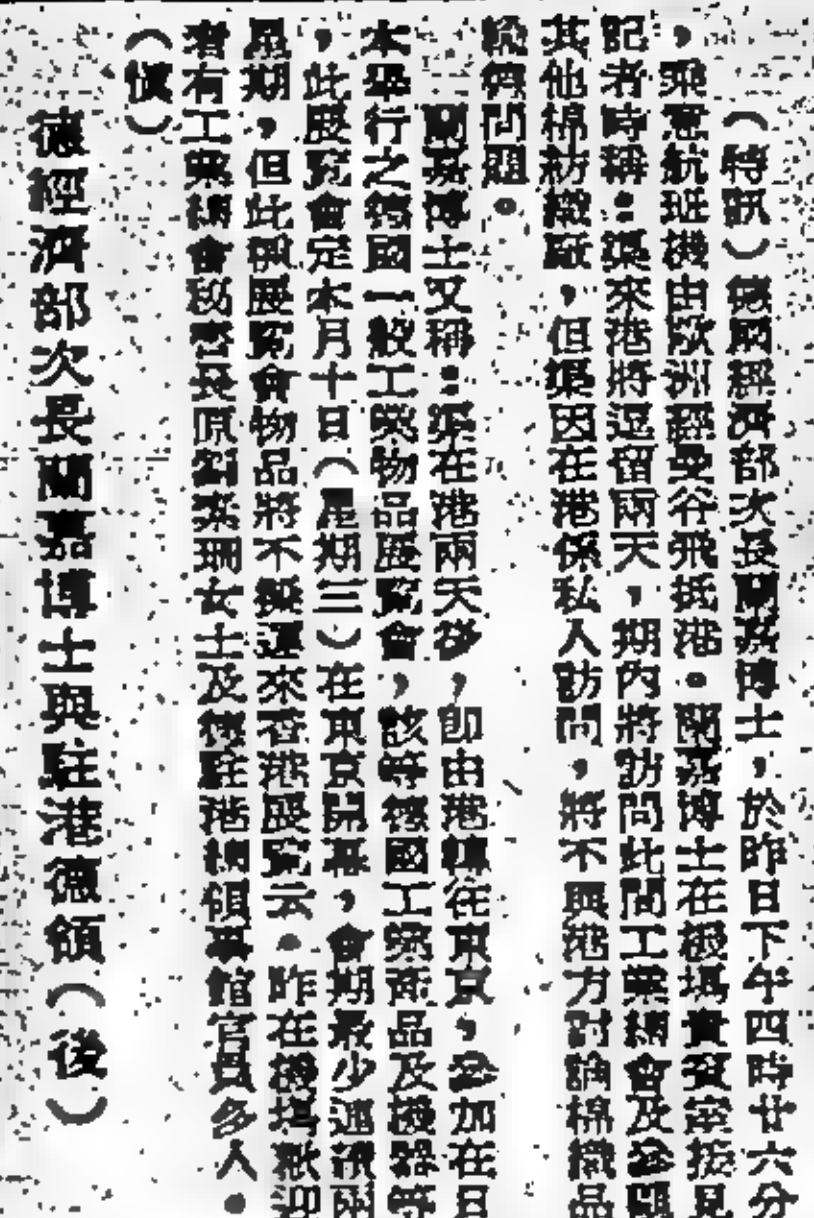 （特訊）德國經濟部次長蘭嘉博士，於昨日下午四時廿六分
，乘意航班機由歐洲經曼谷飛抵港。蘭嘉博士在機塲貴賓室接見
記者時稱：渠來港將逗留兩天，期內將訪問此間工業總會及參觀
其他棉紡織厰，但渠因在港係私人訪問，將不與港方討論棉織品
輸德問題。
蘭嘉博士又稱：渠在港兩天後，即由港轉往東京，參加在日
本舉行之德國一般工業物品展覧會，該等德國工業商品及機器等
，此展覧會定本月十日（星期三）在東京開幕，會期最少連續兩
星期，但此項展覧會物品將不擬運來香港展覧云。昨在機塲歡迎
者有工業總會秘書長原劉素珊女士及德駐港總領事館官員多人。
（慎）
德經濟部次長蘭嘉博士與駐港德領（後）